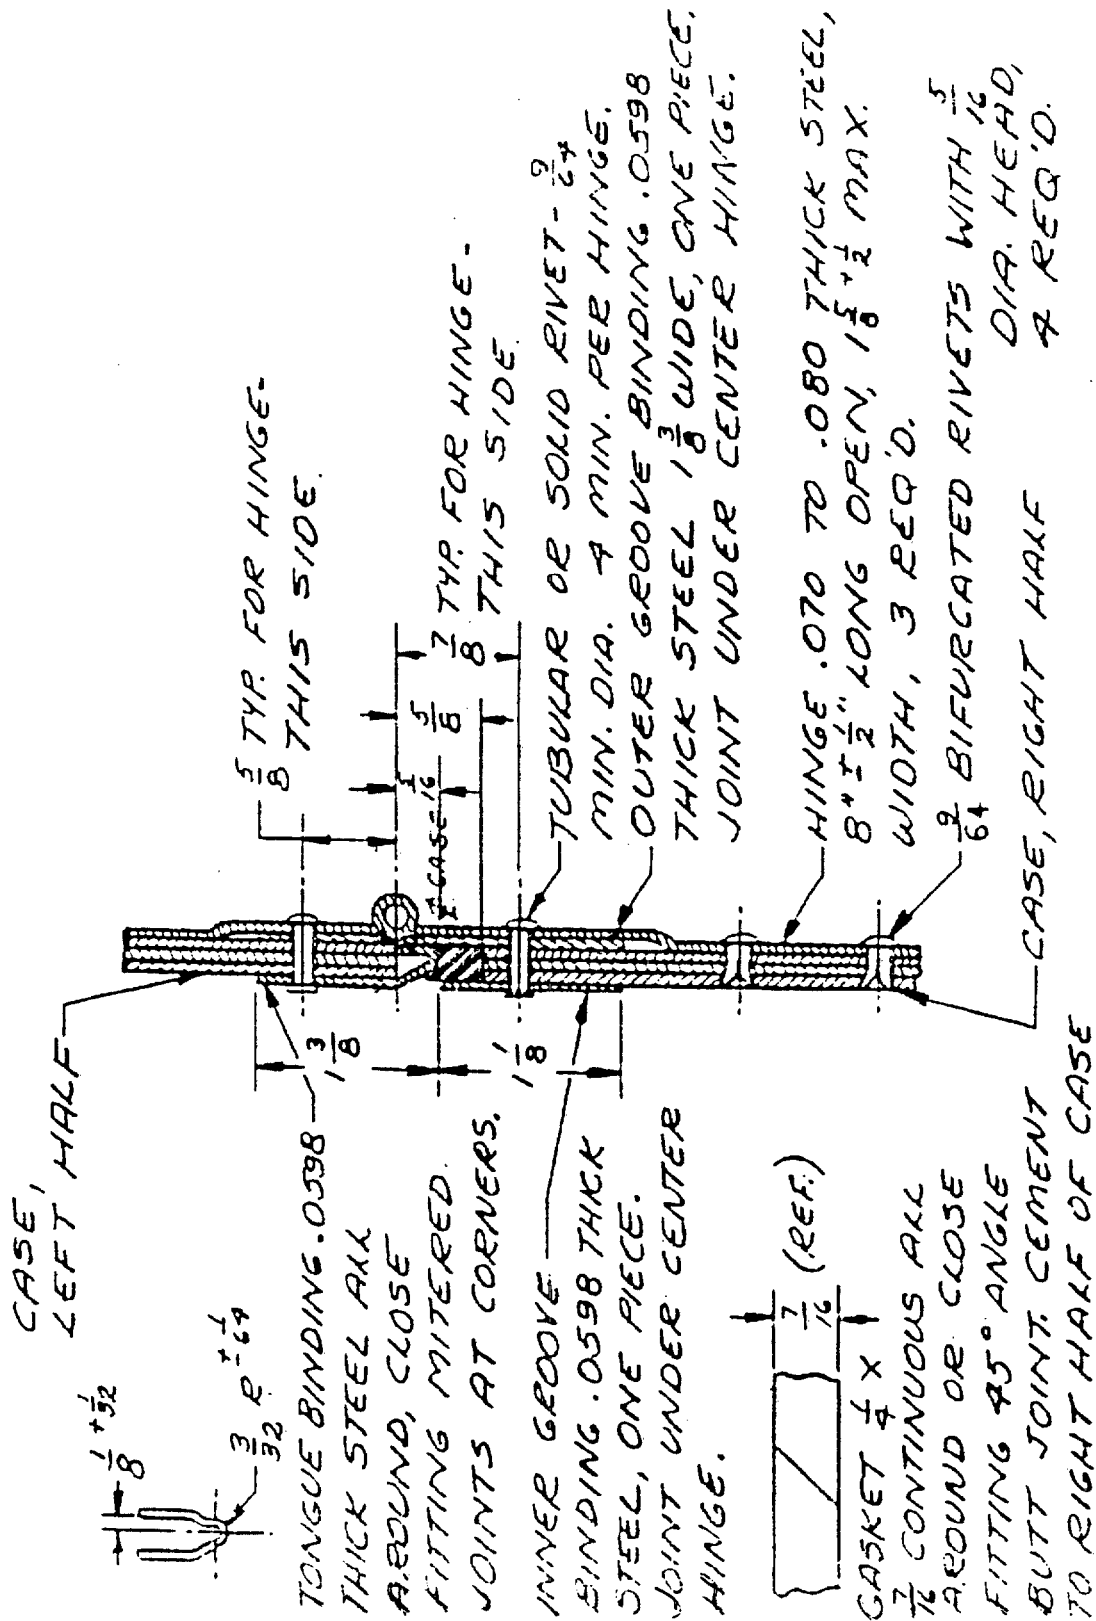 CASE,
LEFT HALF
1/8 + 1/32
3/32 R ± 1/64
TONGUE BINDING .0598
THICK STEEL ALL
AROUND, CLOSE
FITTING MITERED
JOINTS AT CORNERS.
INNER GROOVE
BINDING .0598 THICK
STEEL, ONE PIECE.
JOINT UNDER CENTER
HINGE.
7/16 (REF.)
GASKET 1/4 X
7/16 CONTINUOUS ALL
AROUND OR CLOSE
FITTING 45° ANGLE
BUTT JOINT. CEMENT
TO RIGHT HALF OF CASE
1 3/8
1 1/8
5/8 TYP. FOR HINGE-
THIS SIDE.
CASE
5/16
5/8
7/8 TYP. FOR HINGE-
THIS SIDE
TUBULAR OR SOLID RIVET- 9/64
MIN. DIA. 4 MIN. PER HINGE.
OUTER GROOVE BINDING .0598
THICK STEEL 1 3/8 WIDE, ONE PIECE.
JOINT UNDER CENTER HINGE.
HINGE .070 TO .080 THICK STEEL,
8" ± 1/2" LONG OPEN, 1 5/8 + 1/2 MAX.
WIDTH, 3 REQ'D.
9/64 BIFURCATED RIVETS WITH 5/16
DIA. HEAD,
4 REQ'D.
CASE, RIGHT HALF